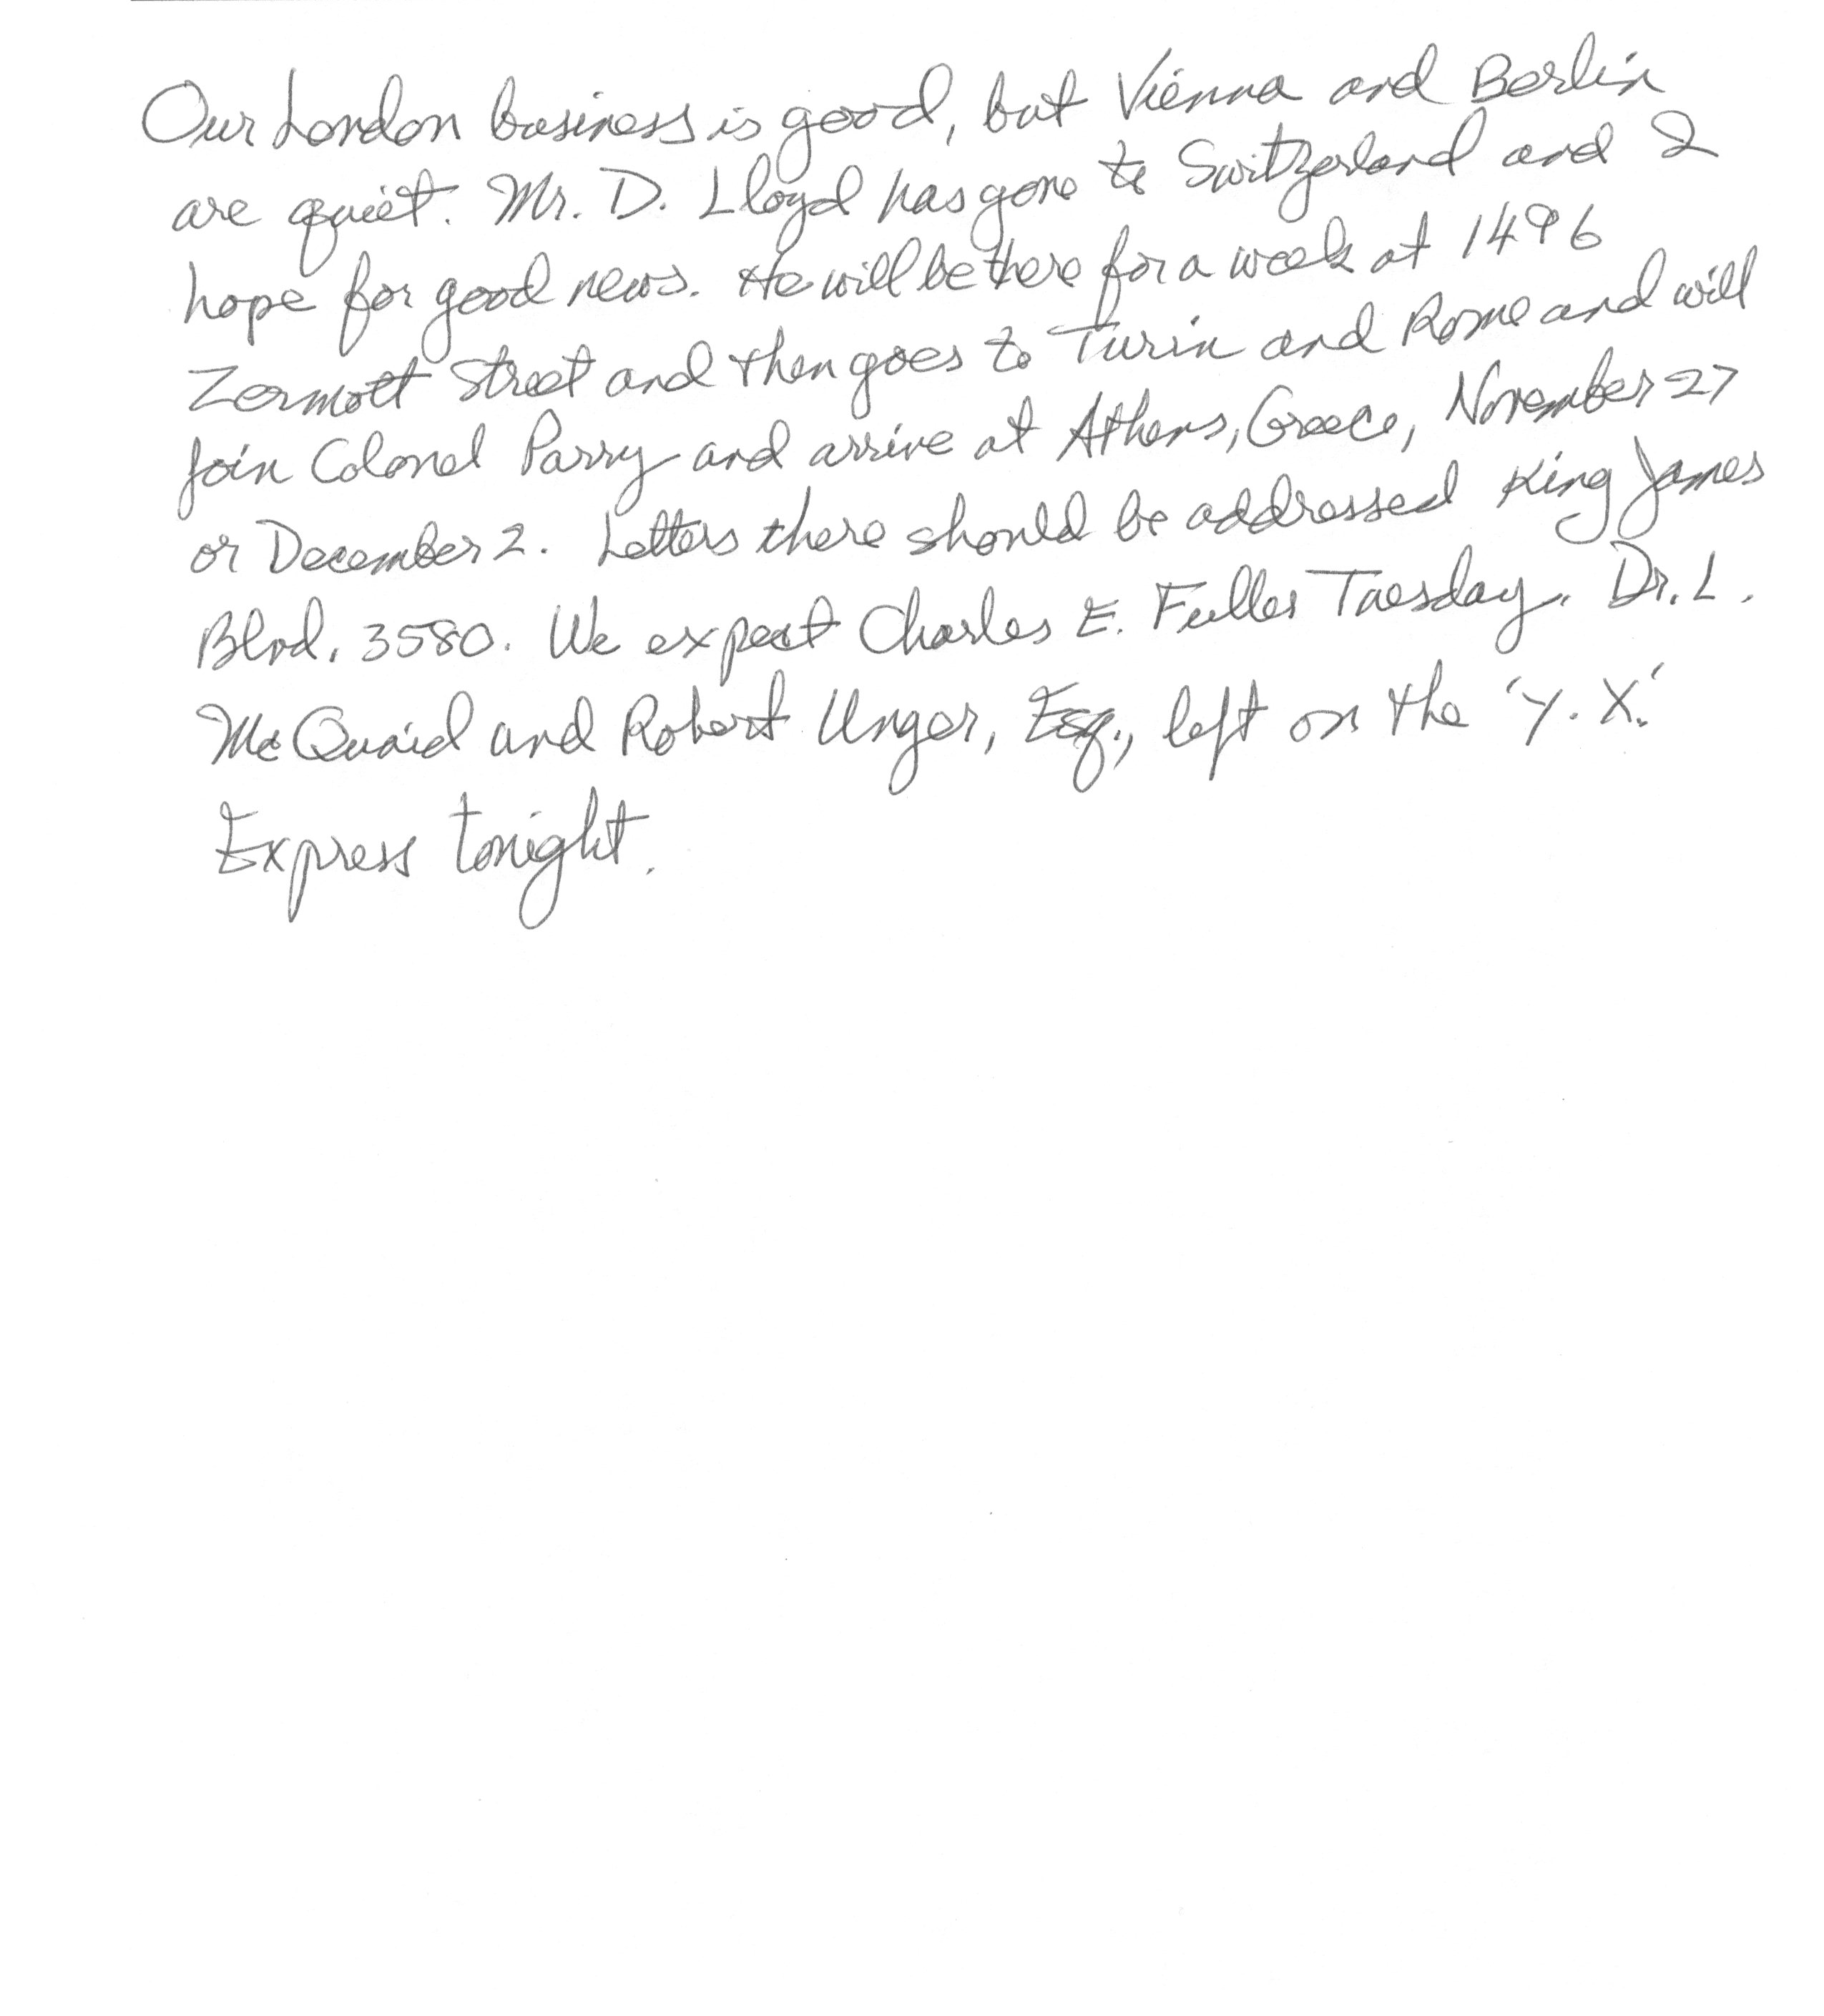 Our London business is good, but Vienna and Berlin
are quiet. Mr. D. Lloyd has gone to Switzerland and I
hope for good news. He will be there for a week at 1496
Zermott Street and then goes to Turin and Rome and will
join Colonel Parry and arrive at Athens, Greece, November 27
or December 2. Letters there should be addressed King James
Blvd. 3580. We expect Charles E. Fuller Tuesday. Dr. L.
McQuaid and Robert Unger, Esq., left on the 'Y. X.'
Express tonight.